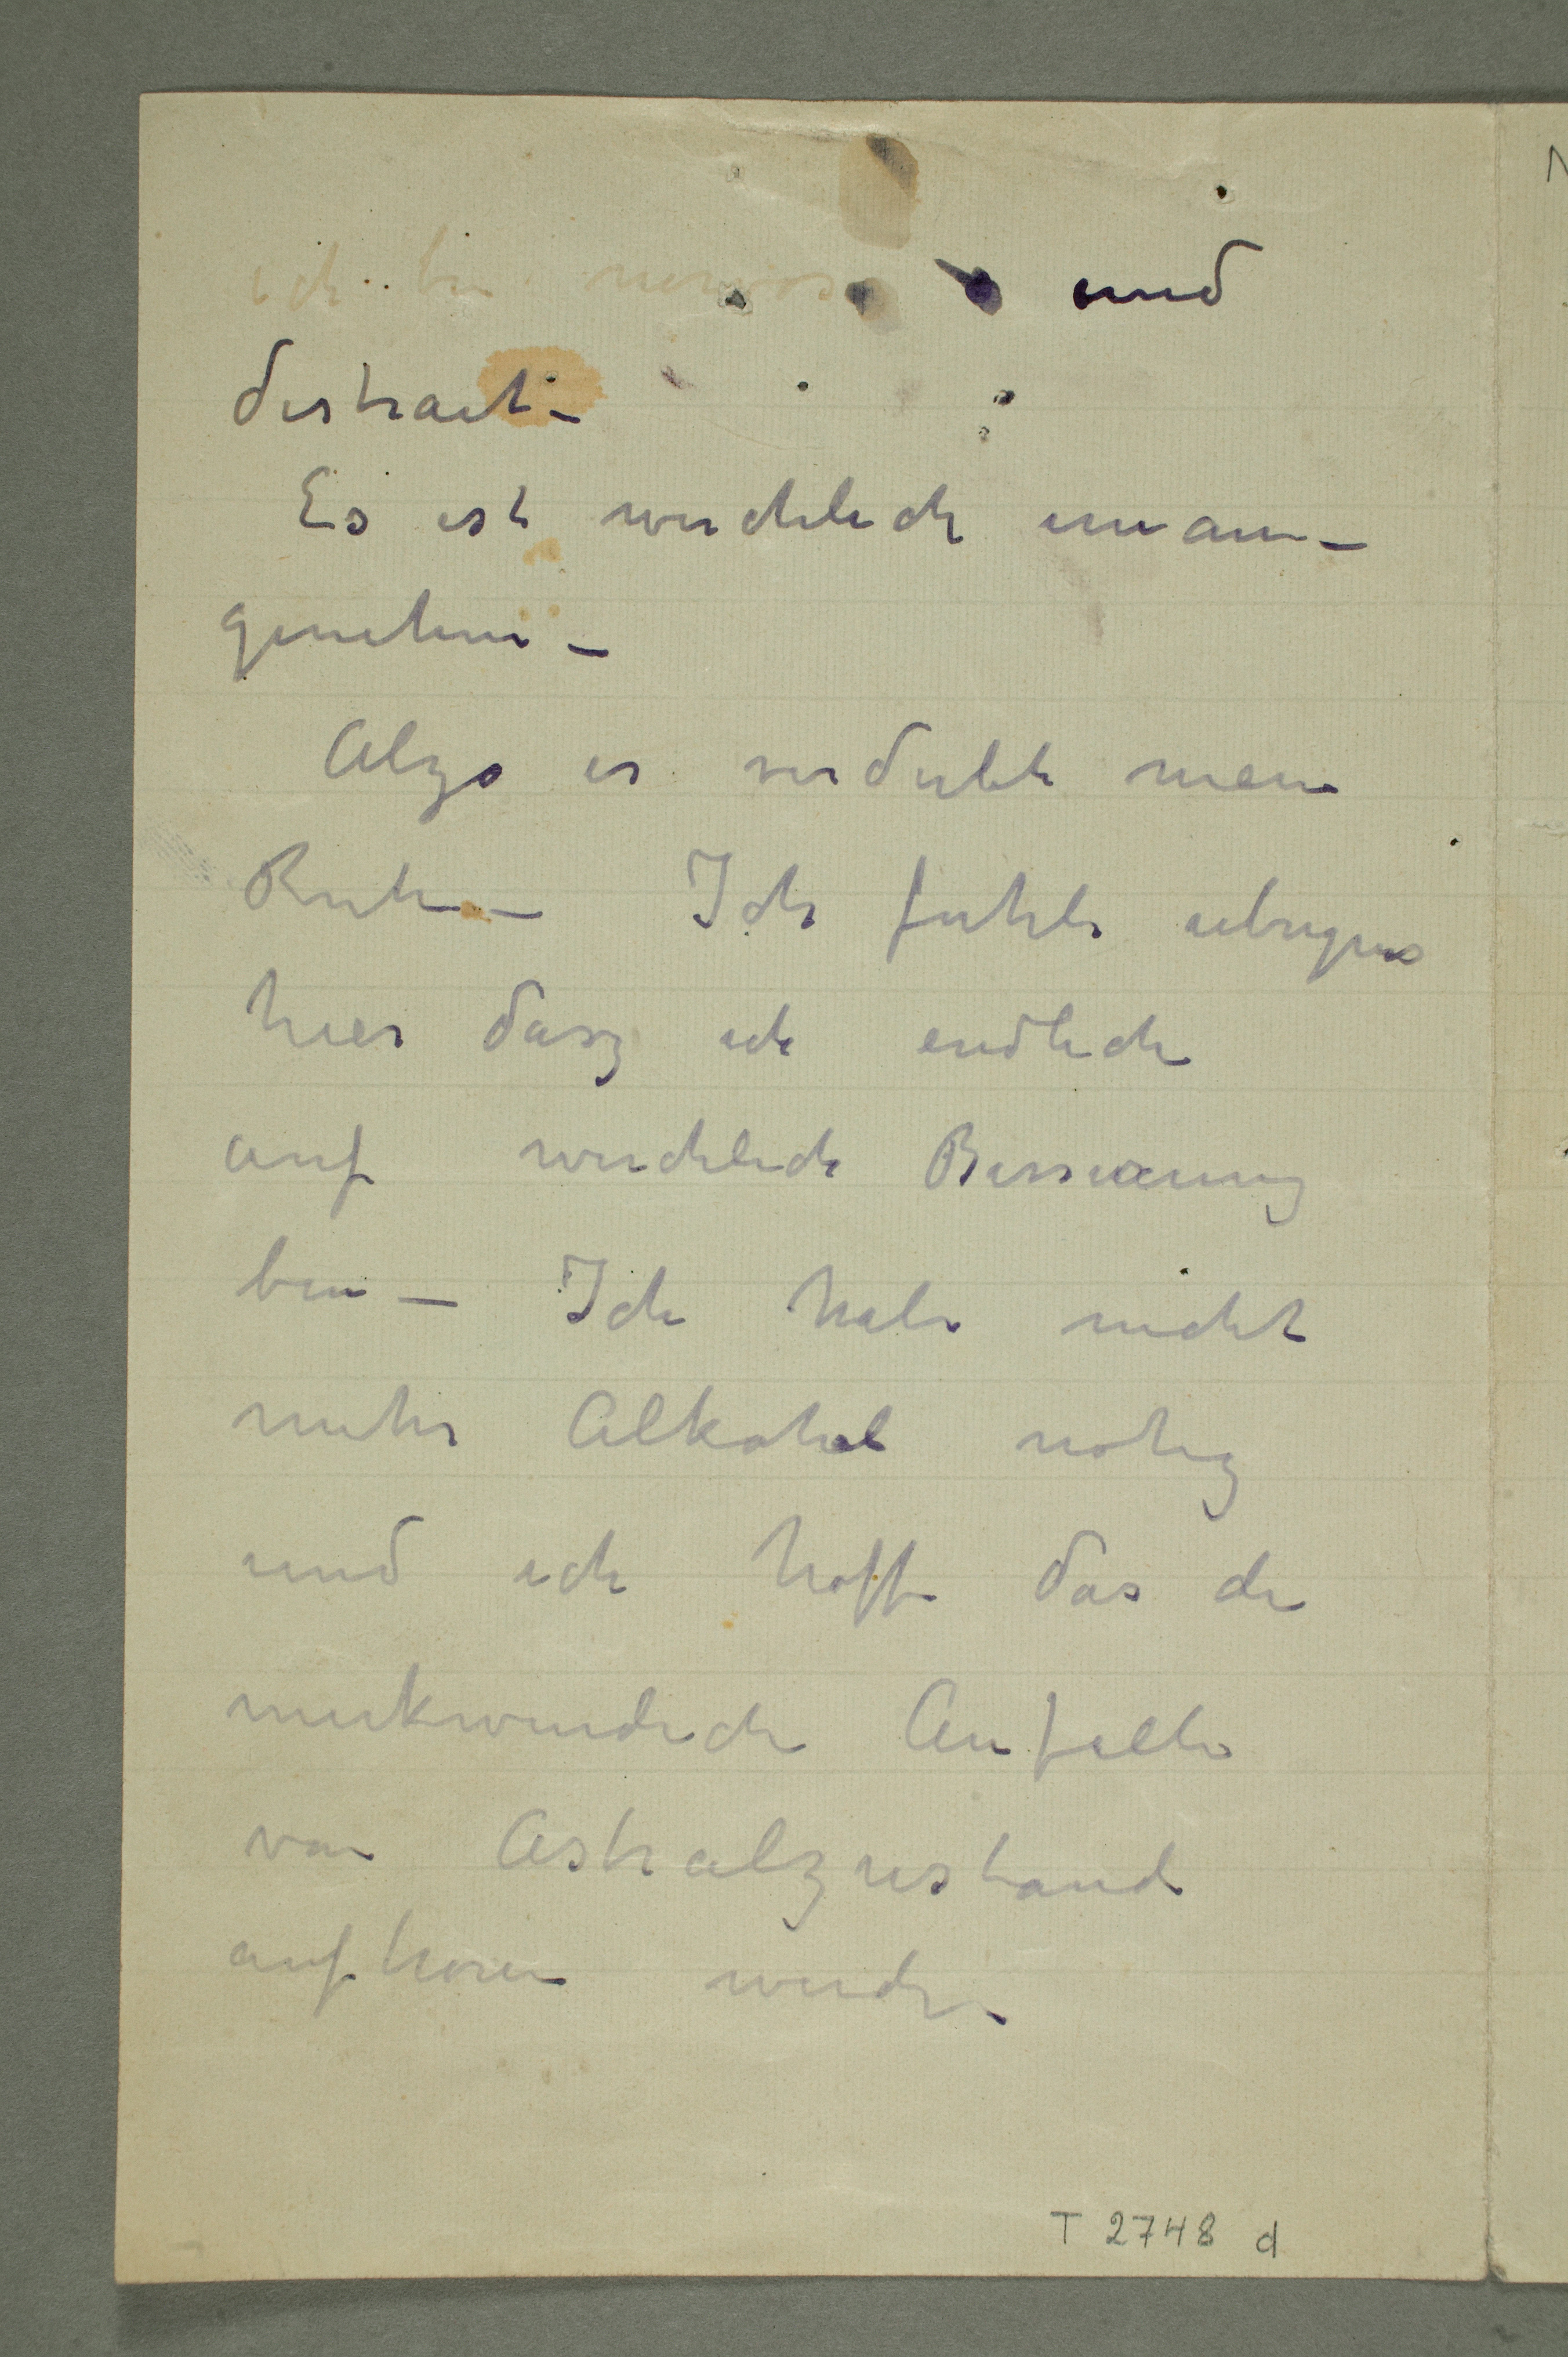 ich bin nervos und
distrait –
Es ist wirchlich unan–
genehm –
Alzo es verdirbt mein
Ruhe – Ich fuhle uebrigens
hier dasz ich endlich
auf wirchlich Besserung
bin – Ich habe nicht
mehr Alkohol notig
und ich hoffe das die
merkwurdiche Anfalle
von Astralzustande
aufhoren werden
T 2748 d